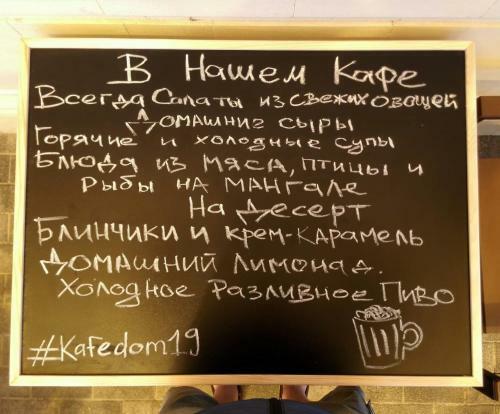 В Нашем Кафе
Всегда Салаты из свежих овощей
Домашние сыры
Горячие и холодные супы
Блюда из мяса, птицы и
рыбы на мангале
На Десерт
Блинчики и крем-карамель
Домашний лимонад.
Холодное Разливное Пиво
#Kafedom19